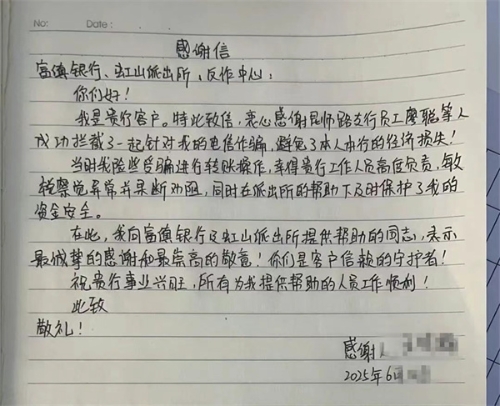 No:
Date:
感谢信
富滇银行、虹山派出所、反诈中心:
你们好!
我是贵行客户。特此致信,衷心感谢昆师路支行员工廖聪等人
成功拦截了一起针对我的电信诈骗,避免了本人本行的经济损失!
当时我险些受骗进行转账操作,幸得贵行工作人员高度负责,敏
锐察觉异常并果断劝阻,同时在派出所的帮助下及时保护了我的
资金安全。
在此,我向富滇银行及虹山派出所提供帮助的同志,表示
最诚挚的感谢和最崇高的敬意!你们是客户信赖的守护者!
祝贵行事业兴旺,所有为我提供帮助的人员工作顺利!
此致
敬礼!
感谢人
2025年6月